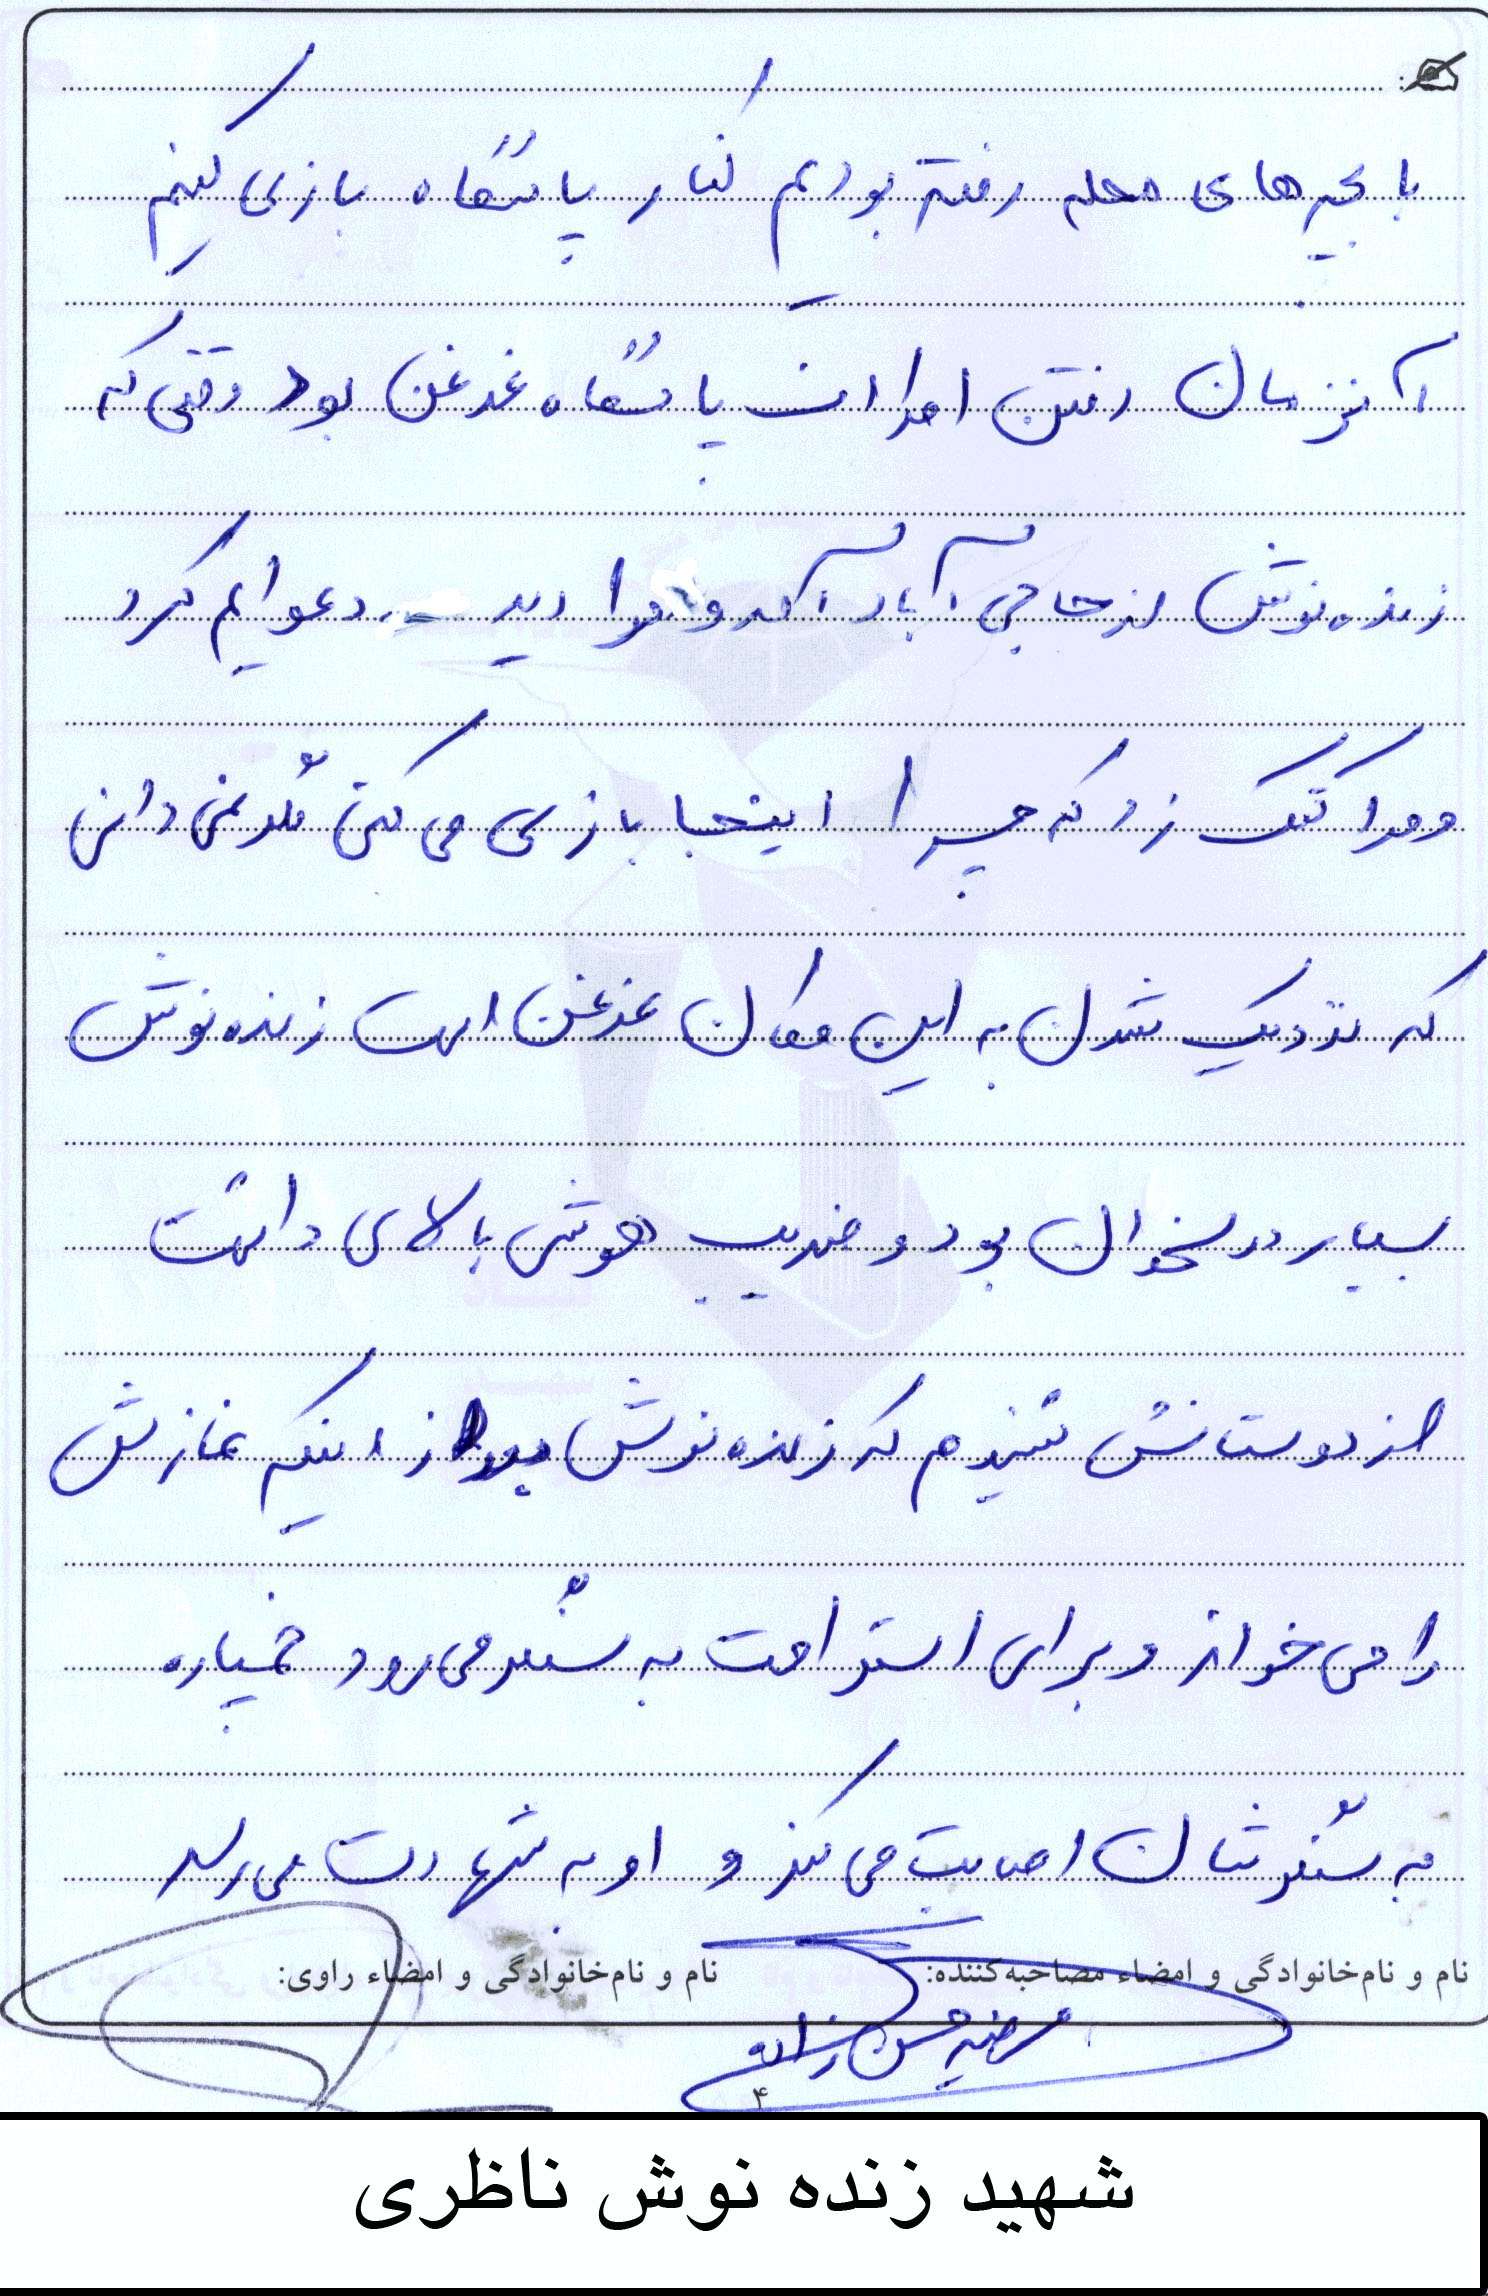 با بچه های محله رفته بودیم کنار پاسگاه بازی کنیم
آنزمان رفتن اطراف پاسگاه غدغن بود وقتی که
زنده نوش از حاجی آباد آمد و مرا دید دعوایم کرد
و مرا کتک زد که چرا اینجا بازی می کنی مگر نمی دانی
که نزدیک شدن به این مکان غدغن است زنده نوش
بسیار درسخوان بود و ضریب هوشی بالای داشت
از دوستانش شنیدم که زنده نوش بعد از اینکه نمازش
را می خواند و برای استراحت به سنگر می رود خمپاره
به سنگرشان اصابت می کند و او به شهادت می رسد
نام و نام‌خانوادگی و امضاء مصاحبه‌کننده: نام و نام‌خانوادگی و امضاء راوی:
۴
شهید زنده نوش ناظری